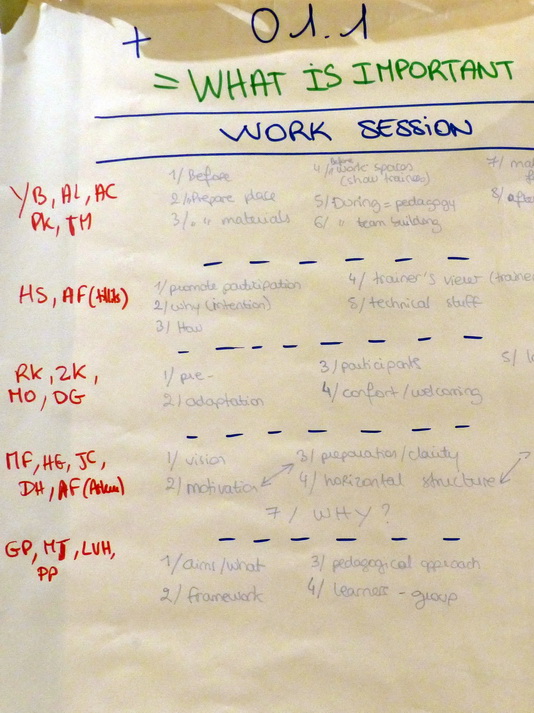 + 01.1
= WHAT IS IMPORTANT
WORK SESSION
YB, AL, AC
PK, TM
1/ Before
2/ Prepare place
3/ " " materials
4/ Before work spaces
(show trainees)
5/ During = pedagogy
6/ " team building
7/
8/ after
HS, AF
1/ promote participation
2/ why (intention)
3/ How
4/ trainer's view
5/ technical stuff
RK, ZK,
MO, DG
1/ pre-
2/ adaptation
3/ participants
4/ confort/welcoming
5/
MF, HG, JC,
DH, AF
1/ vision
2/ motivation
3/ preparation/clarity
4/ horizontal structure
7/ WHY?
GP, MT, LVH,
PP
1/ aims/what
2/ framework
3/ pedagogical approach
4/ learners - group